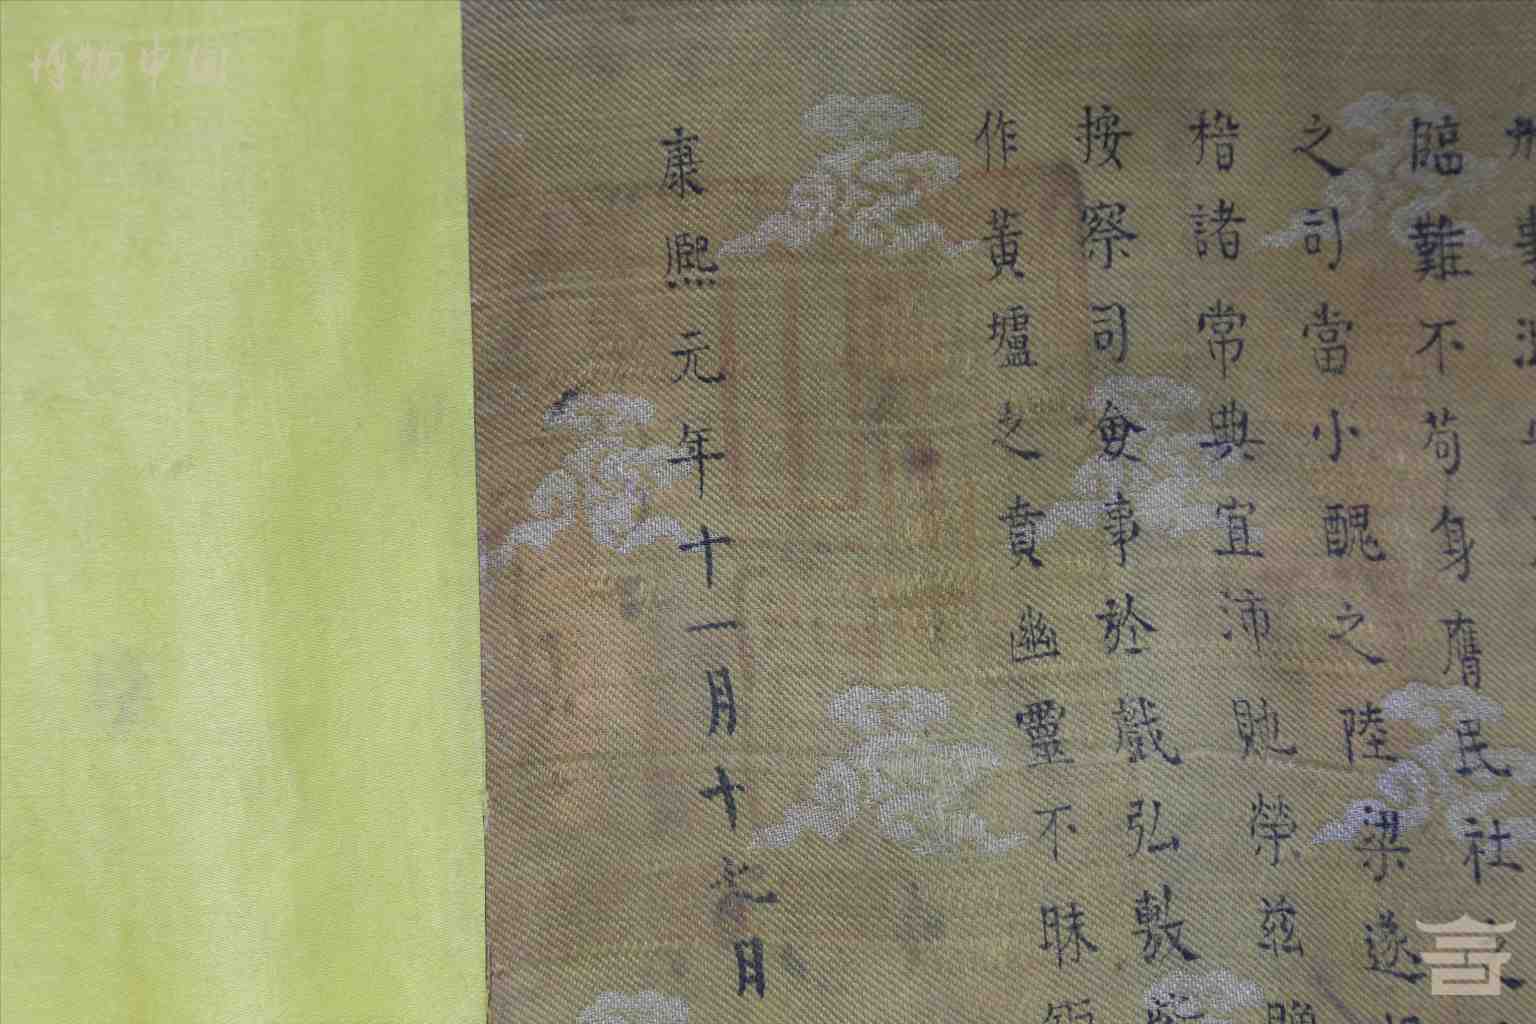 臨難不苟身膺民社
之司當小醜之陸梁遂
楷諸常典宜沛貤榮茲贈
按察司僉事於戲弘敷
作黃壚之賁幽靈不昧
康熙元年十一月十七日
博物中国